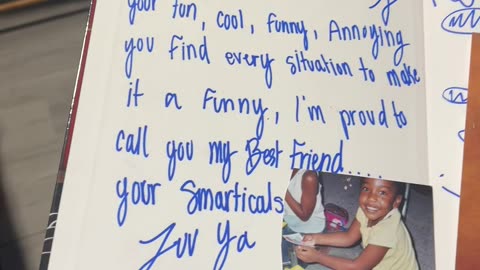 your fun, cool, funny, Annoying
you find every situation to make
it a funny, I'm proud to
call you my Best Friend....
your Smarticals
Luv Ya